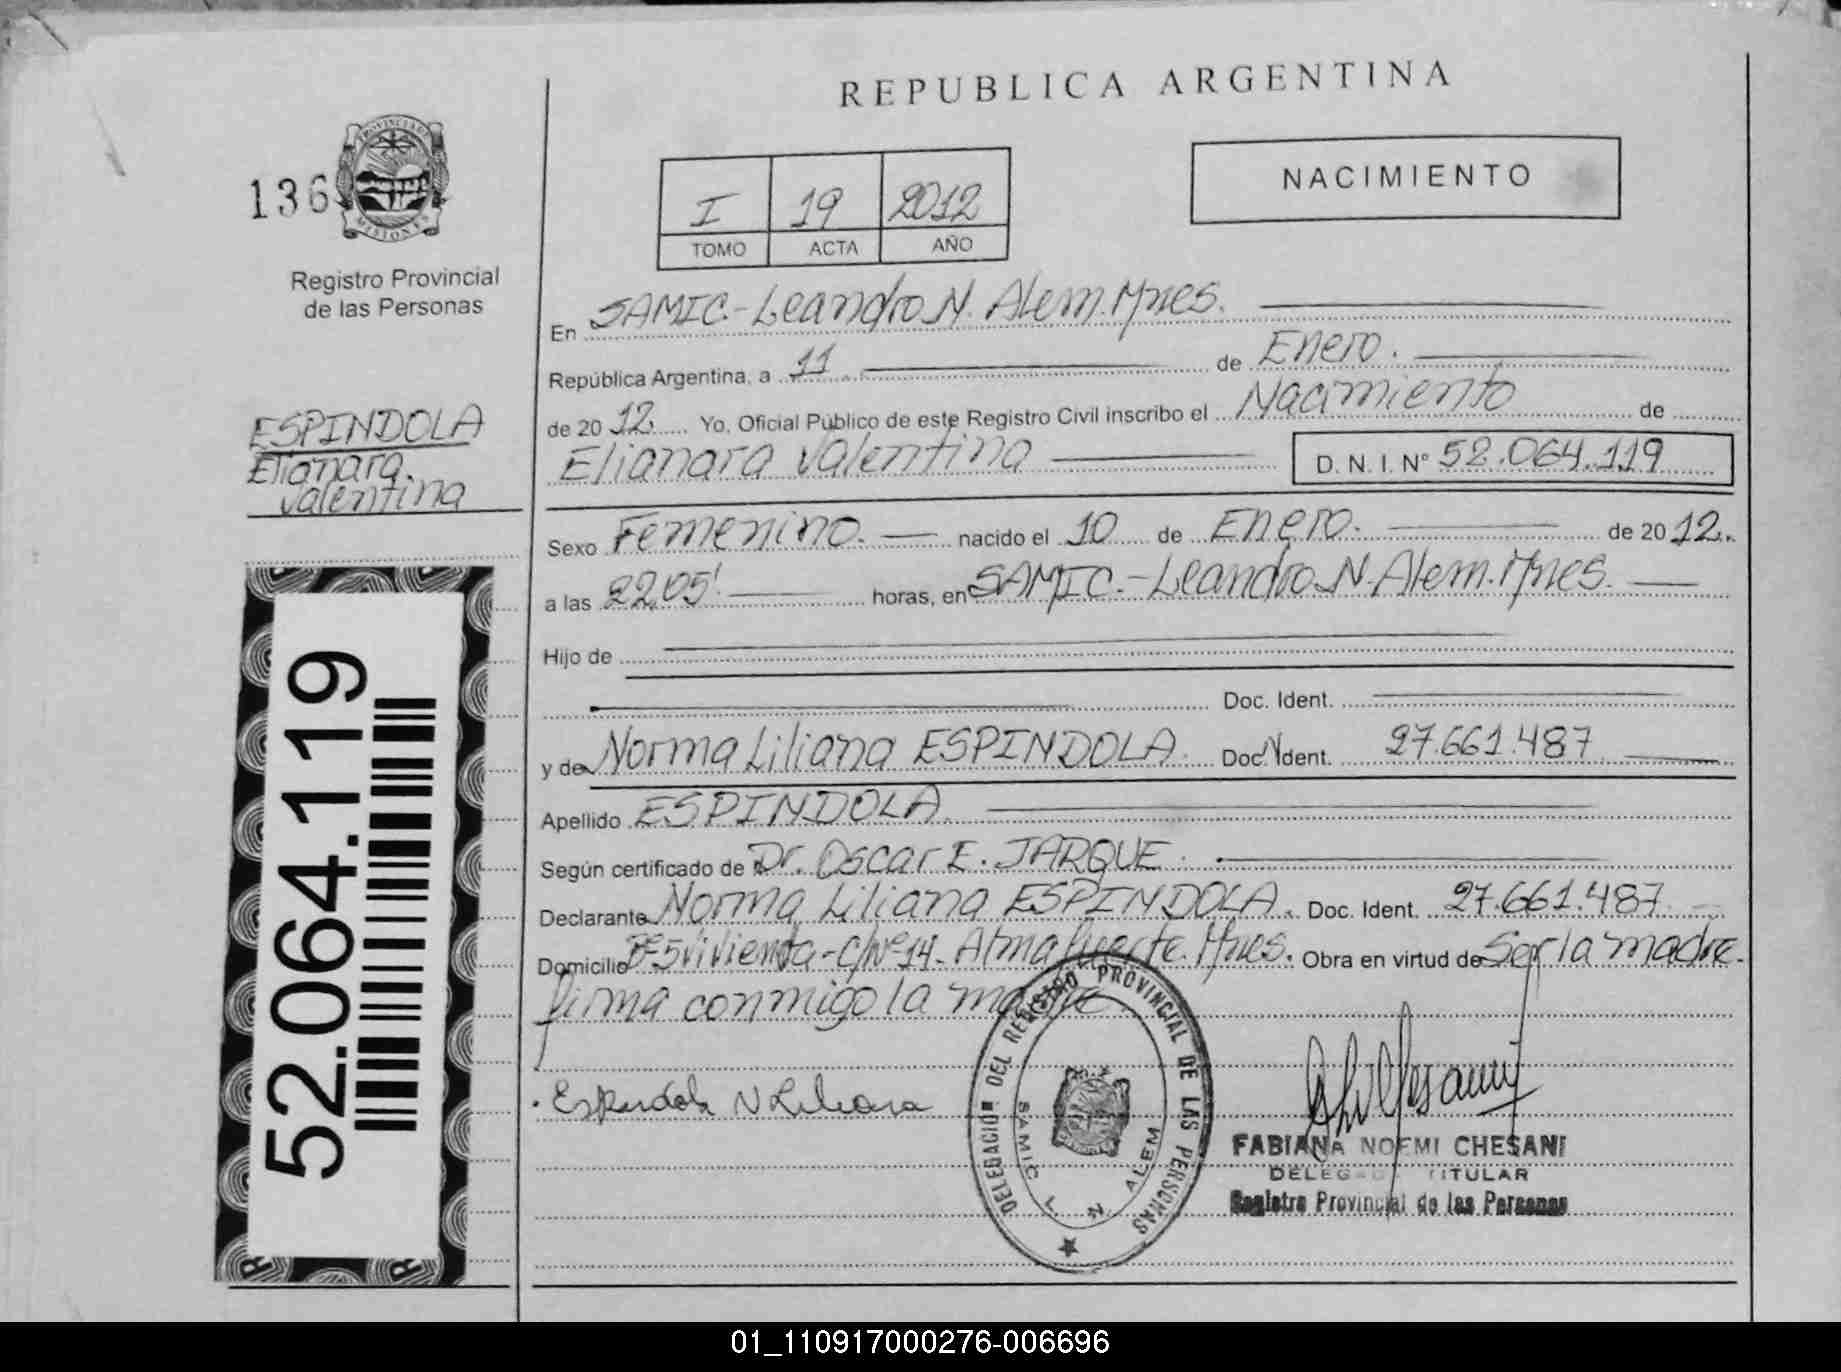 REPUBLICA ARGENTINA
136
PROVINCIA DE
MISIONES
Registro Provincial
de las Personas
I 19 2012
TOMO ACTA AÑO
NACIMIENTO
En SAMIC.-Leandro N. Alem. Mnes.
República Argentina, a 11 de Enero.
de 20 12. Yo, Oficial Público de este Registro Civil inscribo el Nacimiento de
Elianara Valentina D. N. I. Nº 52.064.119
ESPINDOLA
Elianara.
Valentina
Sexo Femenino. nacido el 10 de Enero. de 20 12.
a las 22,05' horas, en SAMIC.-Leandro N. Alem. Mnes.
Hijo de
Doc. Ident.
y de Norma Liliana ESPINDOLA. Doc. Ident. 27.661.487
Apellido ESPINDOLA
Según certificado de Dr. Oscar E. JARQUE.
Declarante Norma Liliana ESPINDOLA. Doc. Ident. 27.661.487
Domicilio Bº 5 vivienda-C/Nº 14. Almafuerte. Mnes. Obra en virtud de Ser la madre.
firma conmigo la madre
Espindola N Liliana
DELEGACION DEL REGISTRO PROVINCIAL DE LAS PERSONAS
SAMIC L. N. ALEM
FABIANA NOEMI CHESANI
DELEGADA TITULAR
Registro Provincial de las Personas
52.064.119
01_110917000276-006696